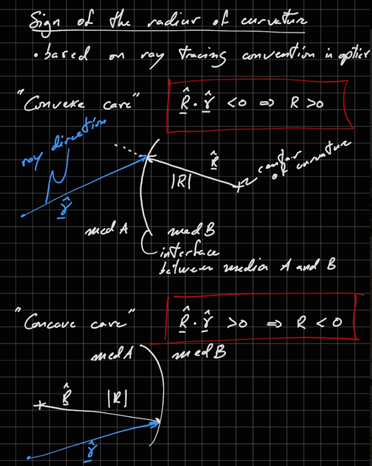 Sign of the radius of curvature
• based on ray tracing convention in optics
"Convexe care" R̂ · γ̂ < 0 ⇒ R > 0
ray direction
R̂
center of curvature
|R|
γ̂
med A med B
interface
between median A and B
"Concave care" R̂ · γ̂ > 0 ⇒ R < 0
med A med B
R̂ |R|
γ̂